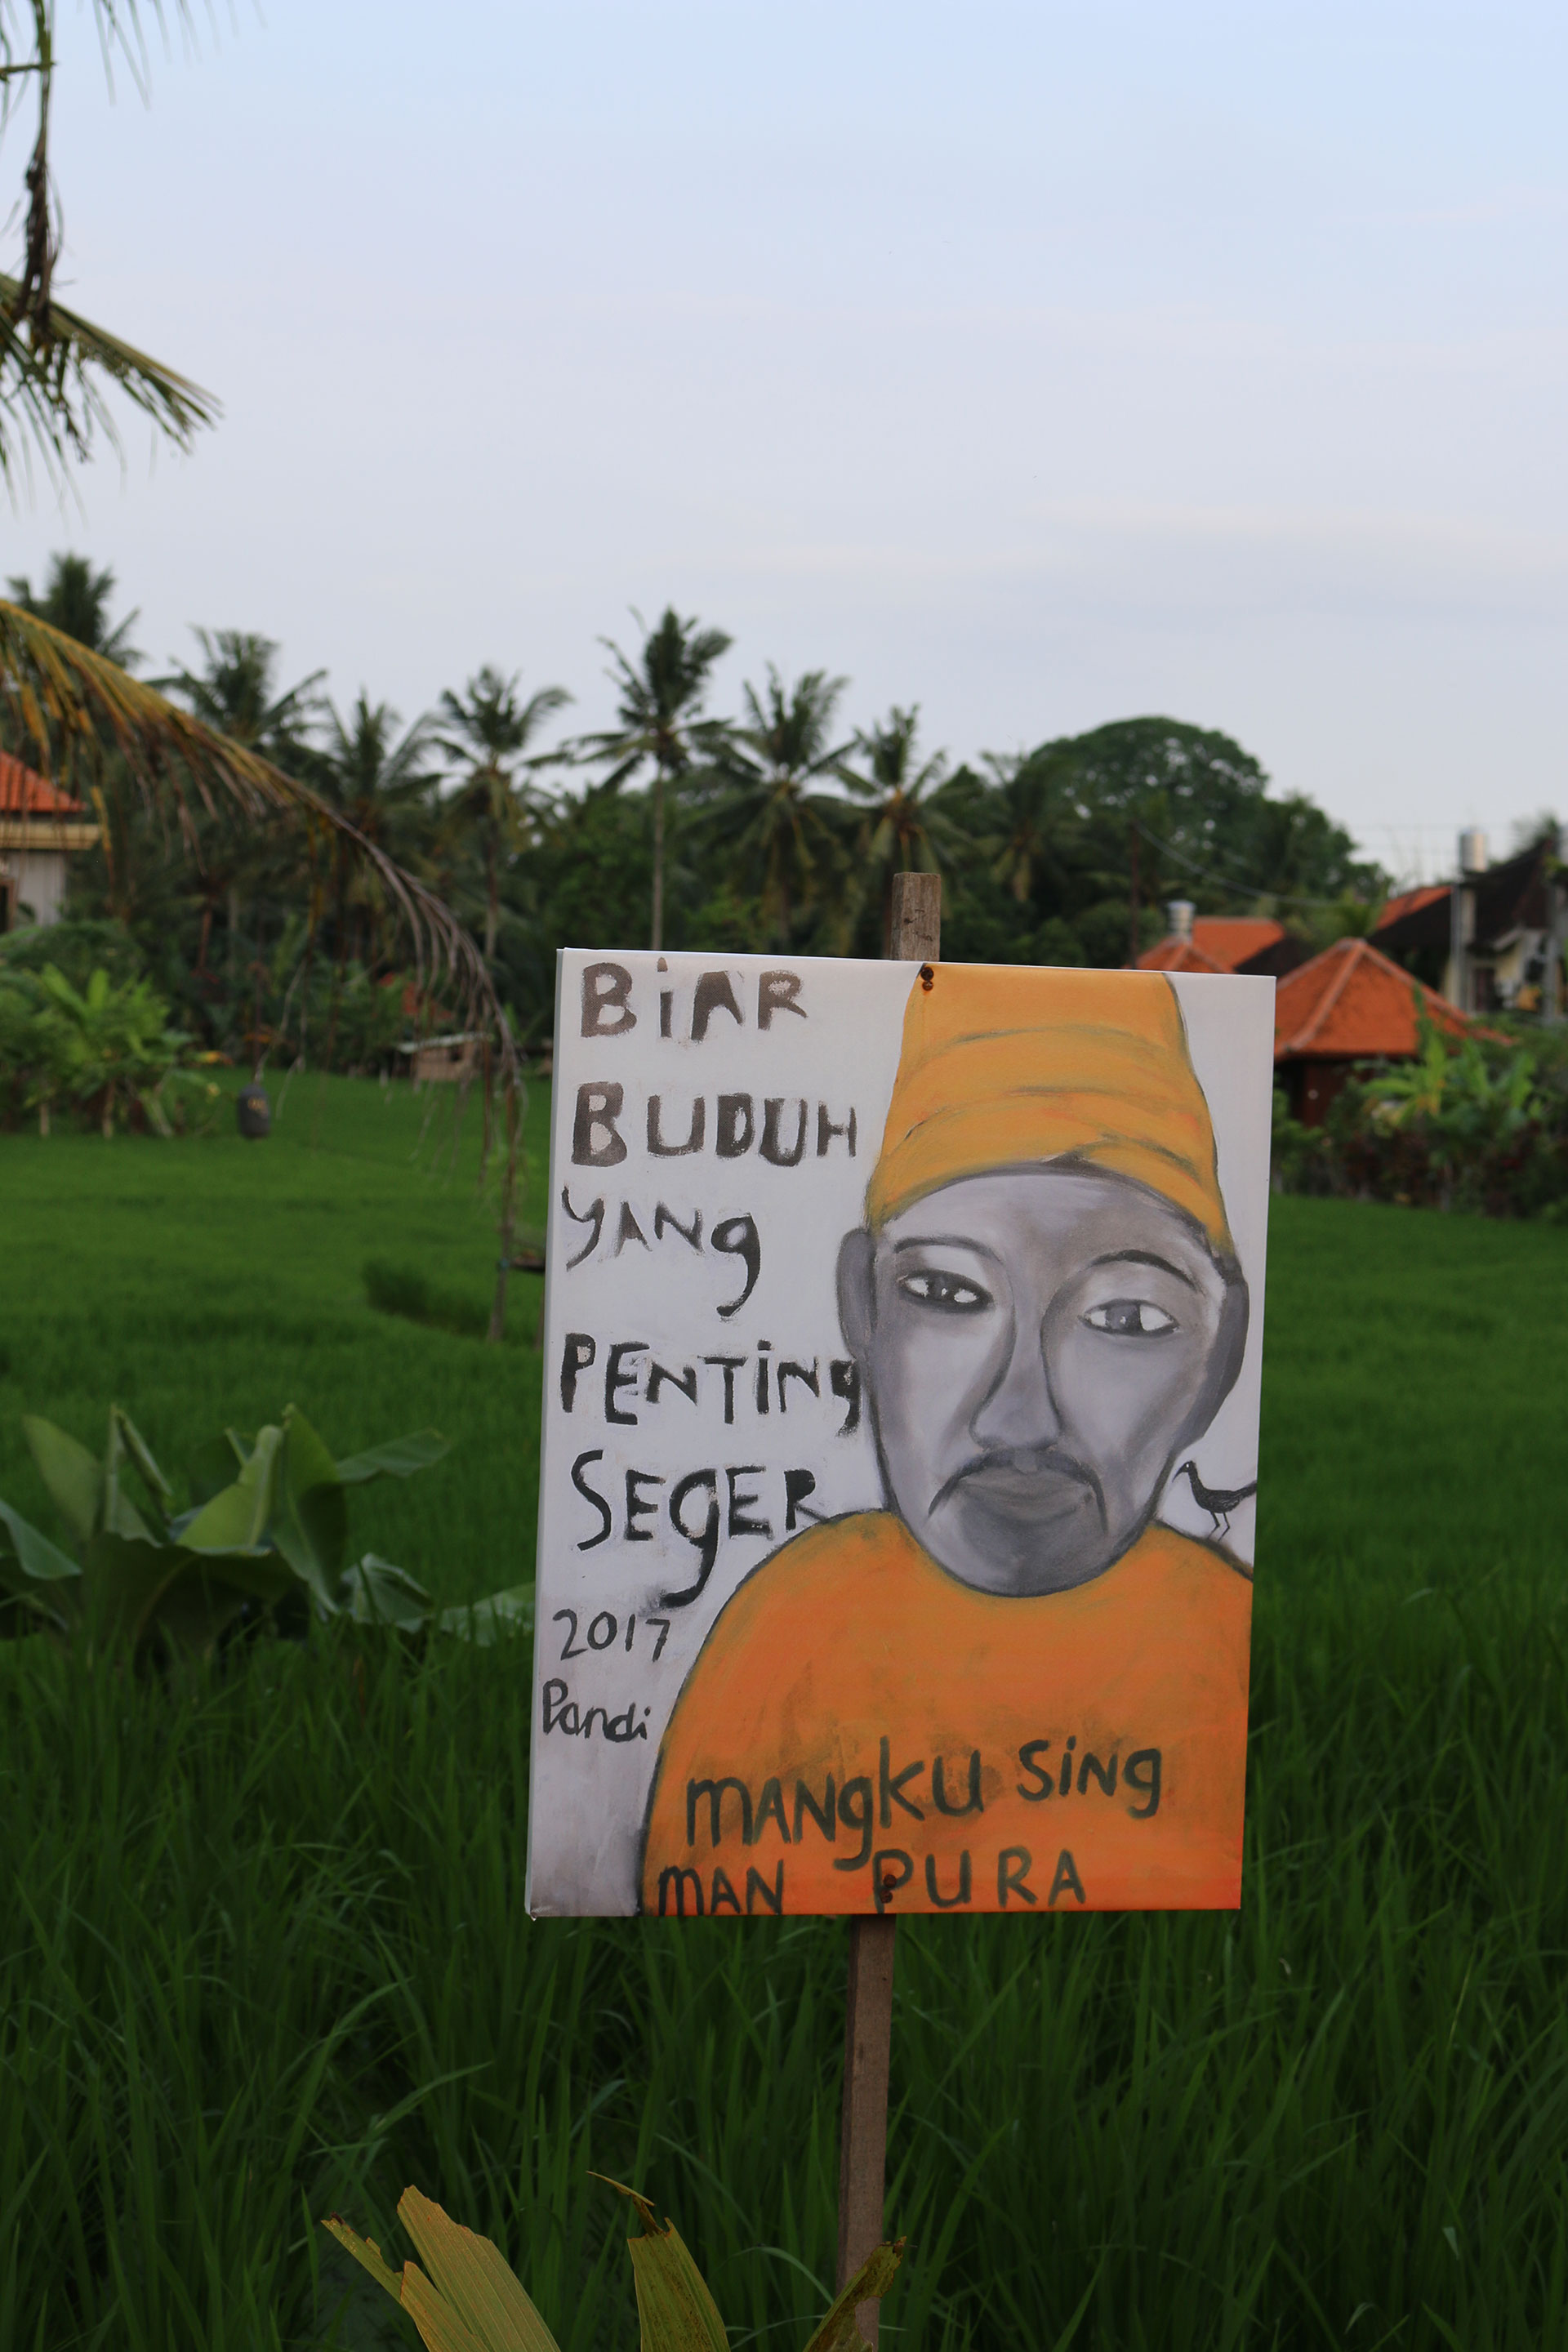 BiAR
BUDUH
YANg
PENTiNg
SEgER
2017
Pandi
mANgKU SiNg
mAN PURA